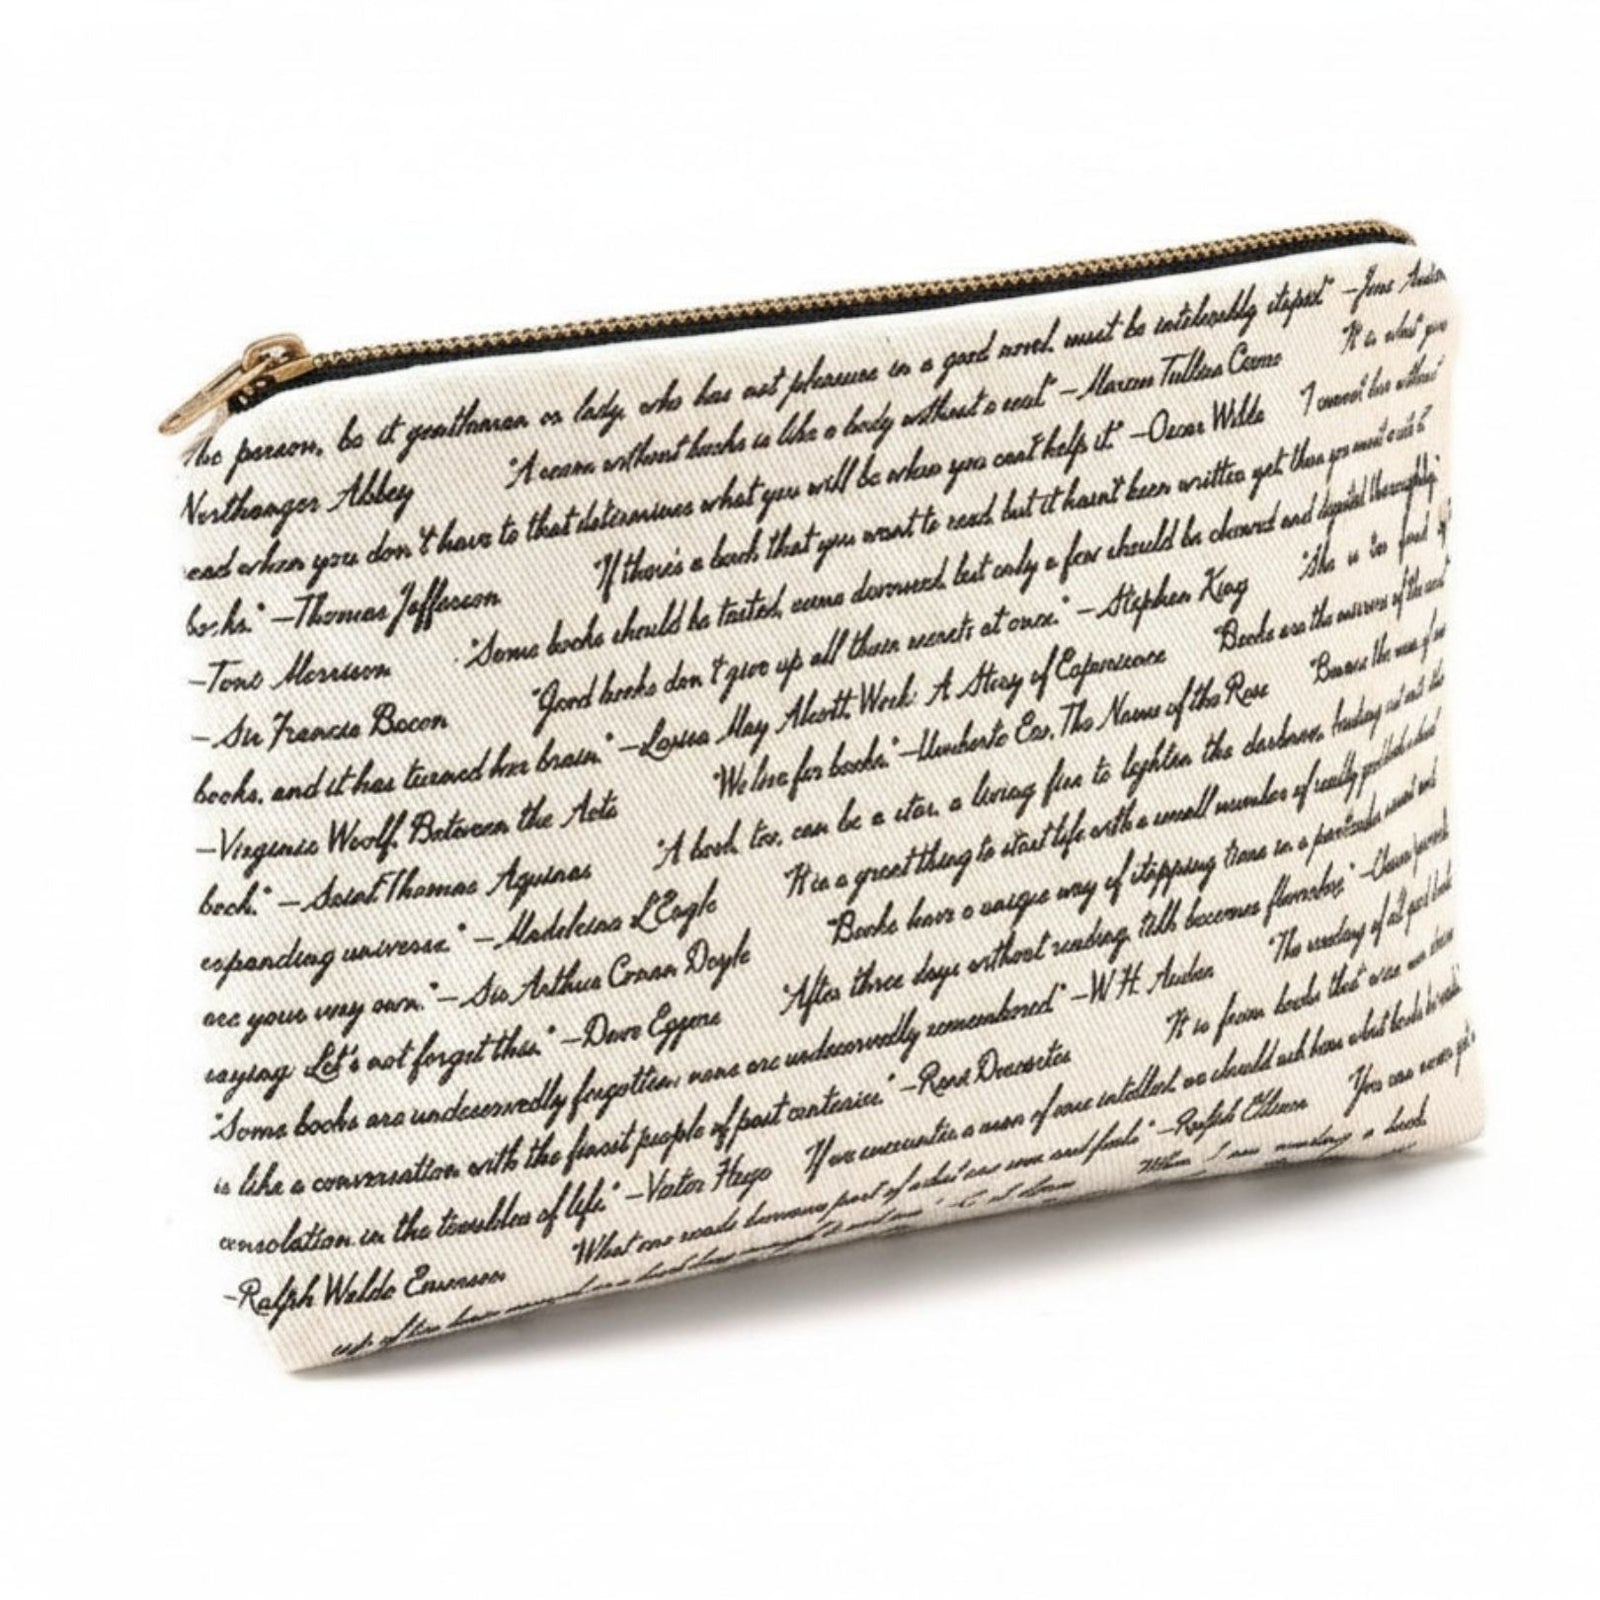 The person, be it gentleman or lady, who has not pleasure in a good novel, must be intolerably stupid" —Jane Austen
Northanger Abbey "A room without books is like a body without a soul" —Marcus Tullius Cicero It is what you
read when you don't have to that determines what you will be when you can't help it." —Oscar Wilde I cannot live without
books." —Thomas Jefferson "If there's a book that you want to read, but it hasn't been written yet, then you must write it
—Toni Morrison "Some books should be tasted, some devoured, but only a few should be chewed and digested thoroughly."
—Sir Francis Bacon "Good books don't give up all their secrets at once." —Stephen King "She is too fond of
books, and it has turned her brain." —Louisa May Alcott, Work: A Story of Experience "Books are the mirrors of the soul
—Virginia Woolf, Between the Acts "We live for books." —Umberto Eco, The Name of the Rose "Beware the man of one
book." —Saint Thomas Aquinas "A book, too, can be a star, a living fire to lighten the darkness, leading out into the
expanding universe." —Madeleine L'Engle It is a great thing to start life with a small number of really good books
are your very own." —Sir Arthur Conan Doyle "Books have a unique way of stopping time in a particular moment and
saying: Let's not forget this." —Dave Eggers "After three days without reading, talk becomes flavorless." —Chinese proverb
"Some books are undeservedly forgotten; none are undeservedly remembered" —W.H. Auden "The reading of all good books
is like a conversation with the finest people of past centuries." —René Descartes It is from books that wise
consolation in the troubles of life." —Victor Hugo If we encounter a man of rare intellect, we should ask him what books he reads."
—Ralph Waldo Emerson "What one reads becomes part of what one sees and feels." —Ralph Ellison You can never get a
When I am reading a book